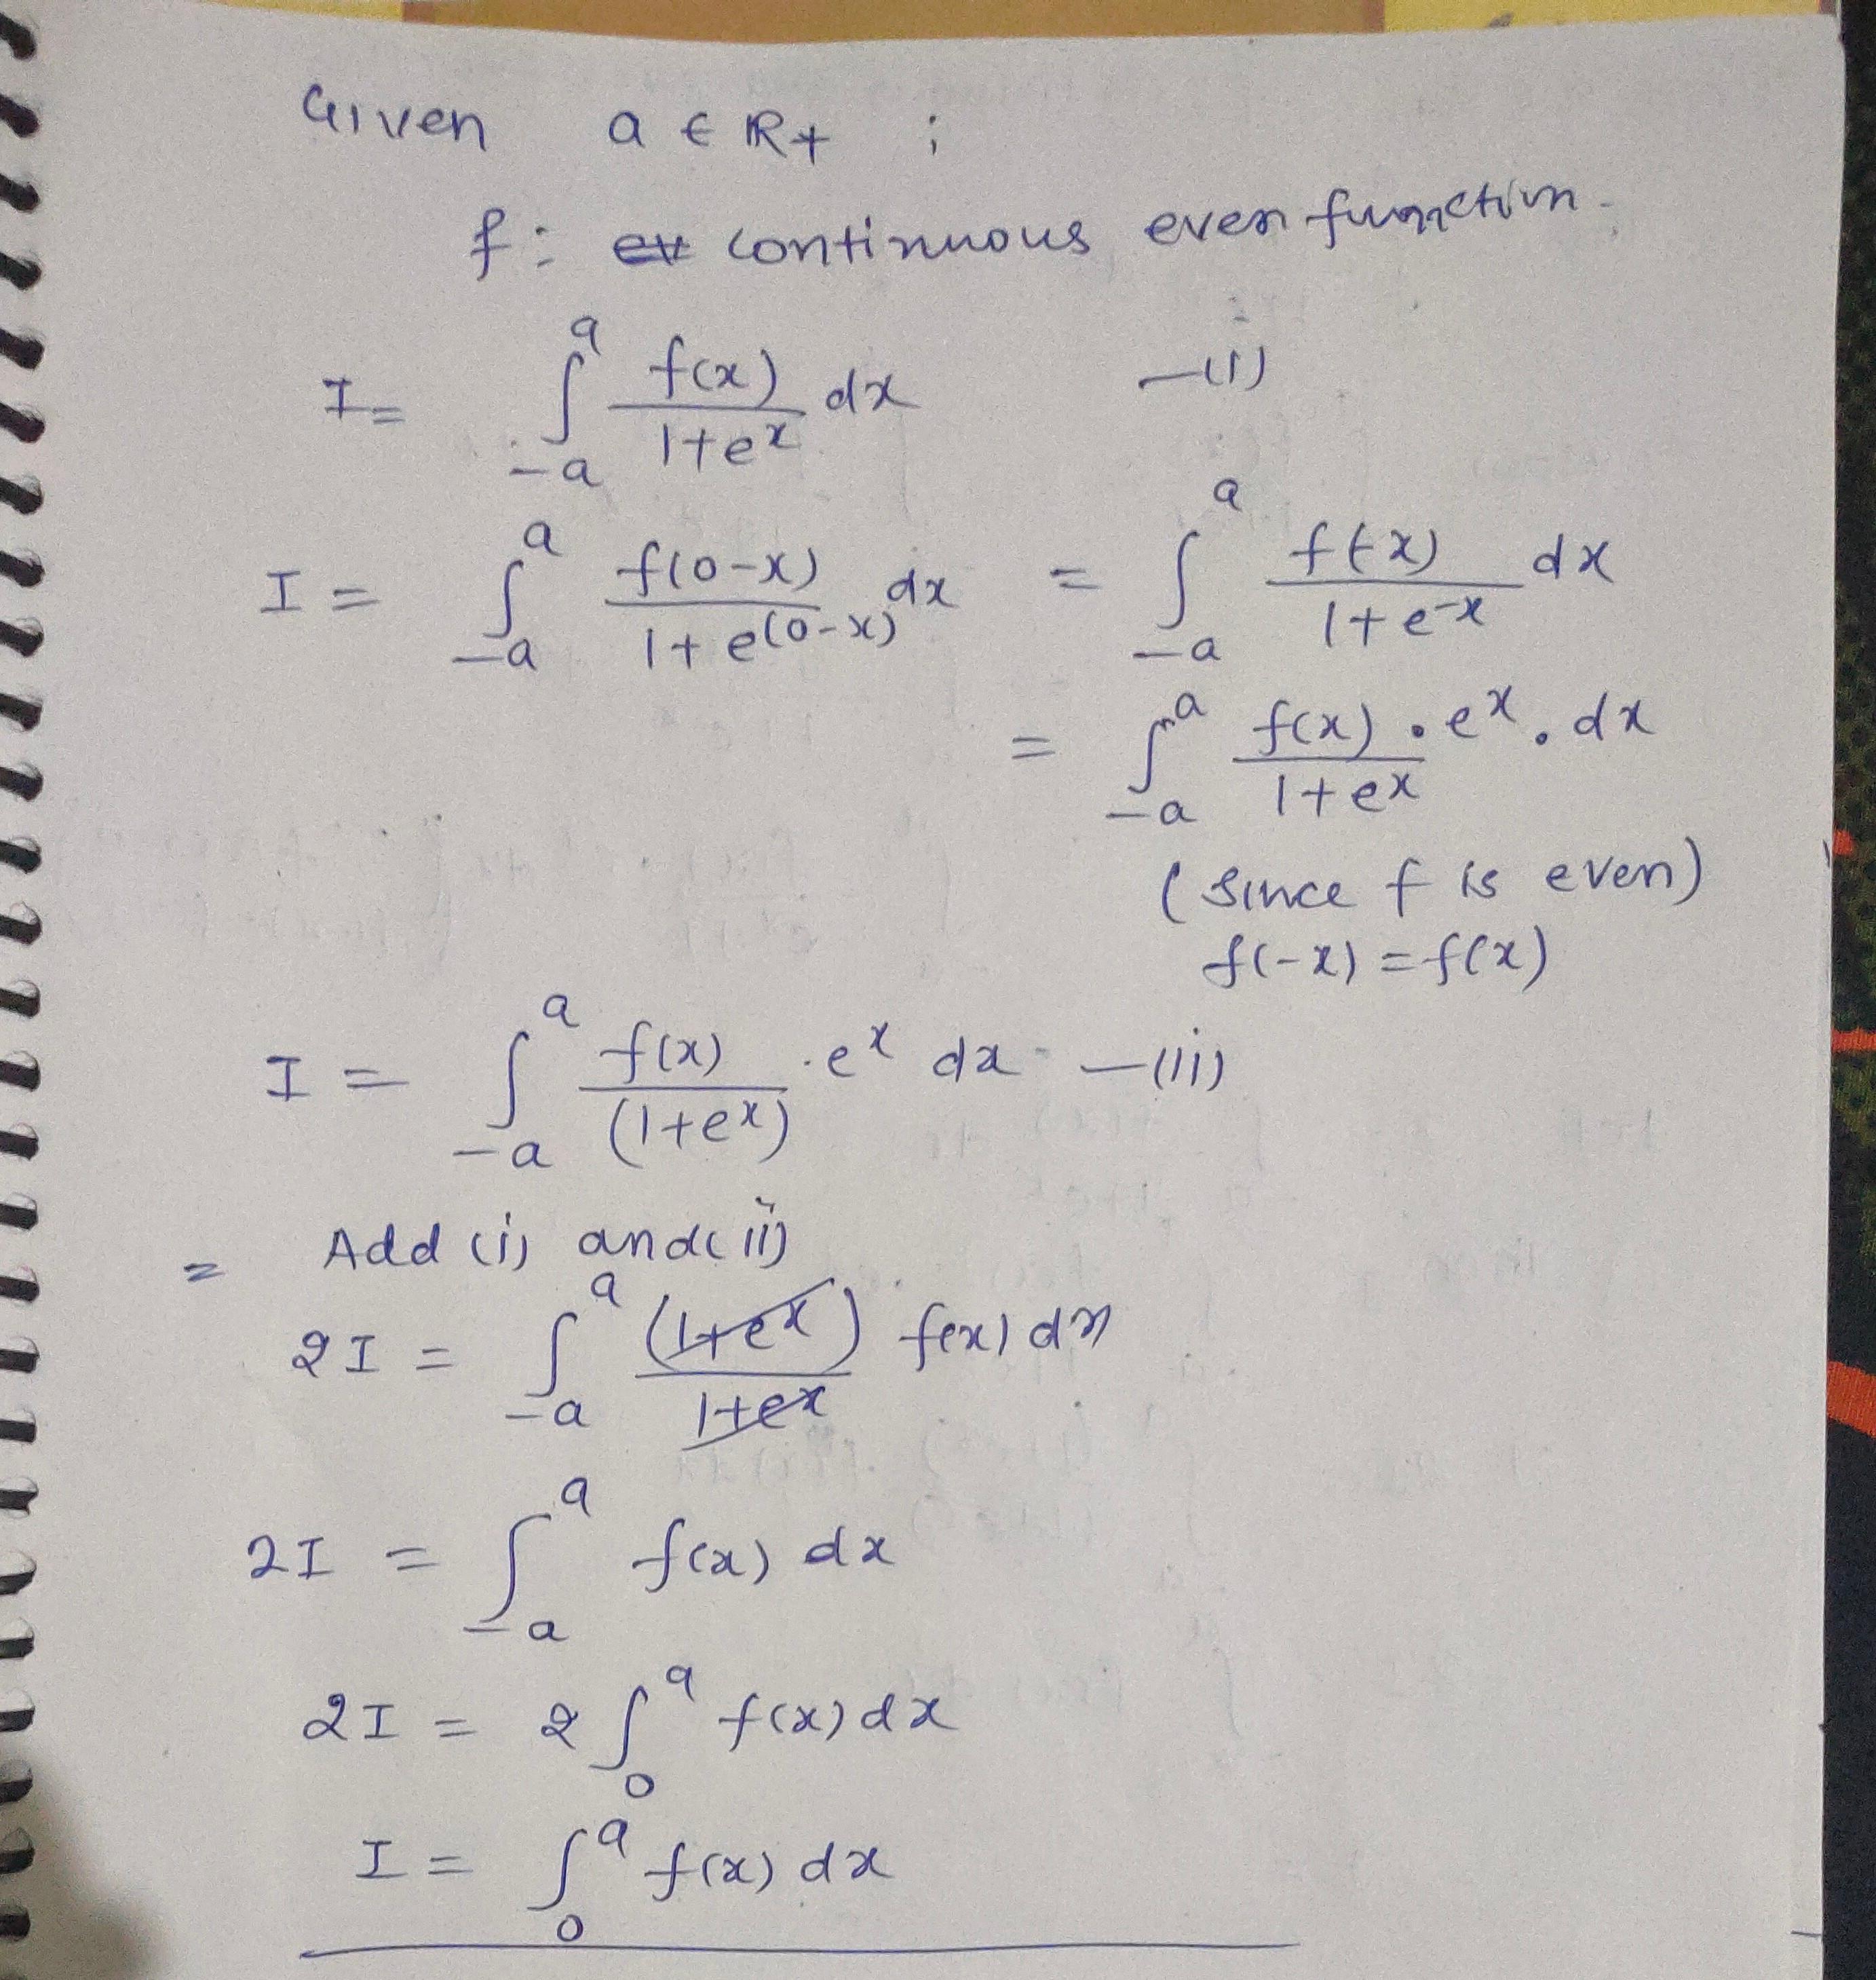 Given a ∈ ℝ+ ;
f : continuous even function.
I = ∫_{-a}^{a} f(x)/(1+e^x) dx —(i)
I = ∫_{-a}^{a} f(0-x)/(1+e^{(0-x)}) dx = ∫_{-a}^{a} f(-x)/(1+e^{-x}) dx
= ∫_{-a}^{a} f(x)/(1+e^x) . e^x . dx
(since f is even)
f(-x) = f(x)
I = ∫_{-a}^{a} f(x)/(1+e^x) . e^x dx —(ii)
= Add (i) and (ii)
2I = ∫_{-a}^{a} (1+e^x)/(1+e^x) f(x) dx
2I = ∫_{-a}^{a} f(x) dx
2I = 2 ∫_{0}^{a} f(x) dx
I = ∫_{0}^{a} f(x) dx